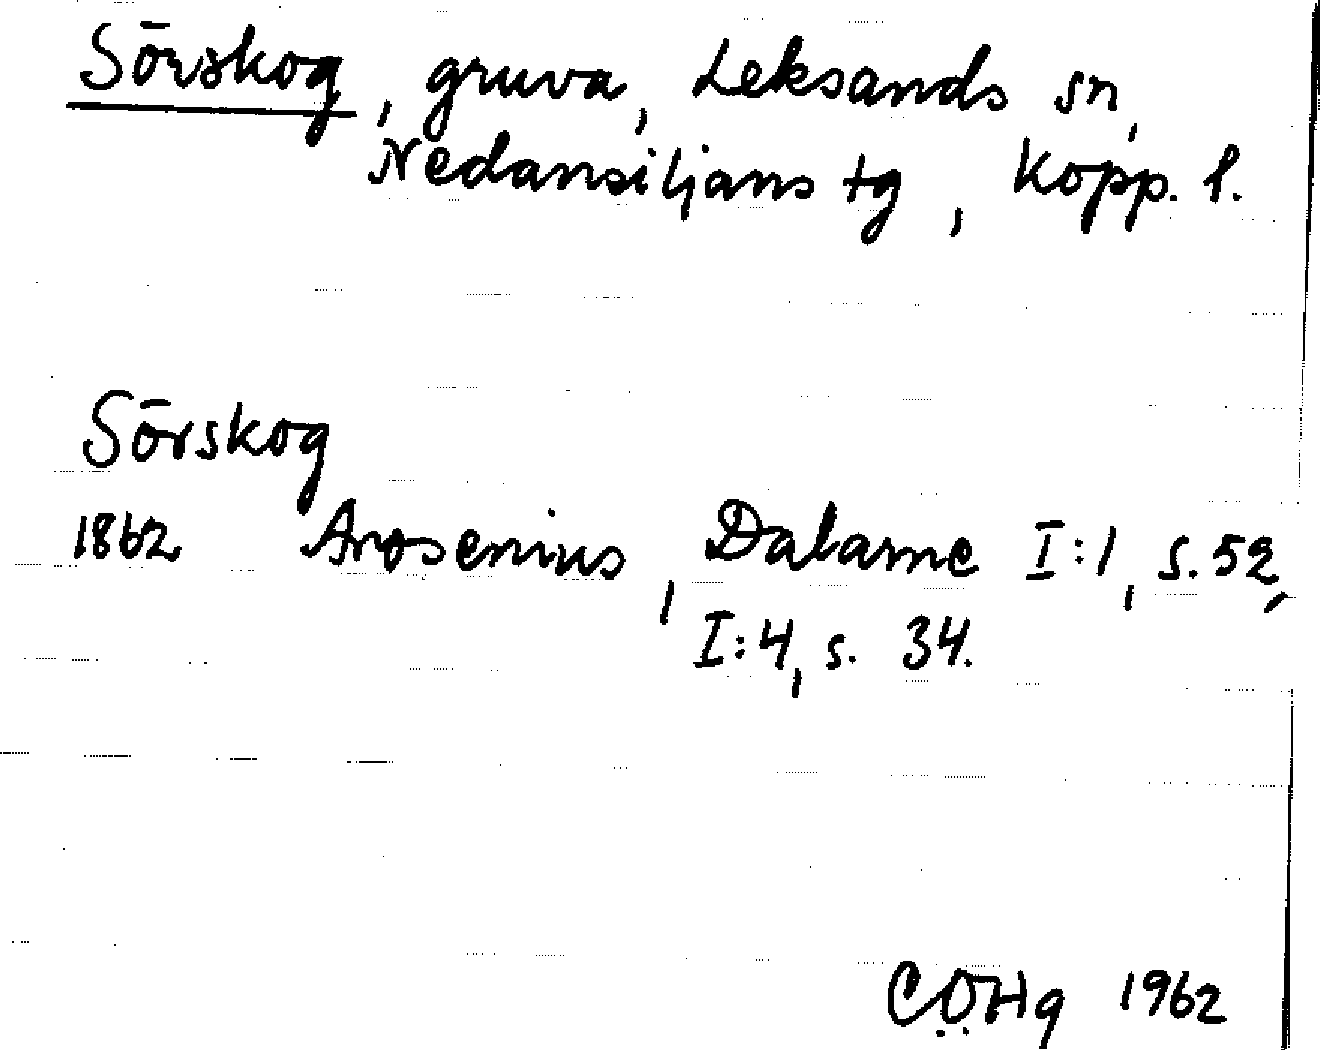 Sörskog, gruva, Leksands sn,
Nedansiljans tg, Kopp. l.
Sörskog
1862 Arosenius, Dalarne I:1, s. 52,
I:4, s. 34.
C.O.Hg 1962